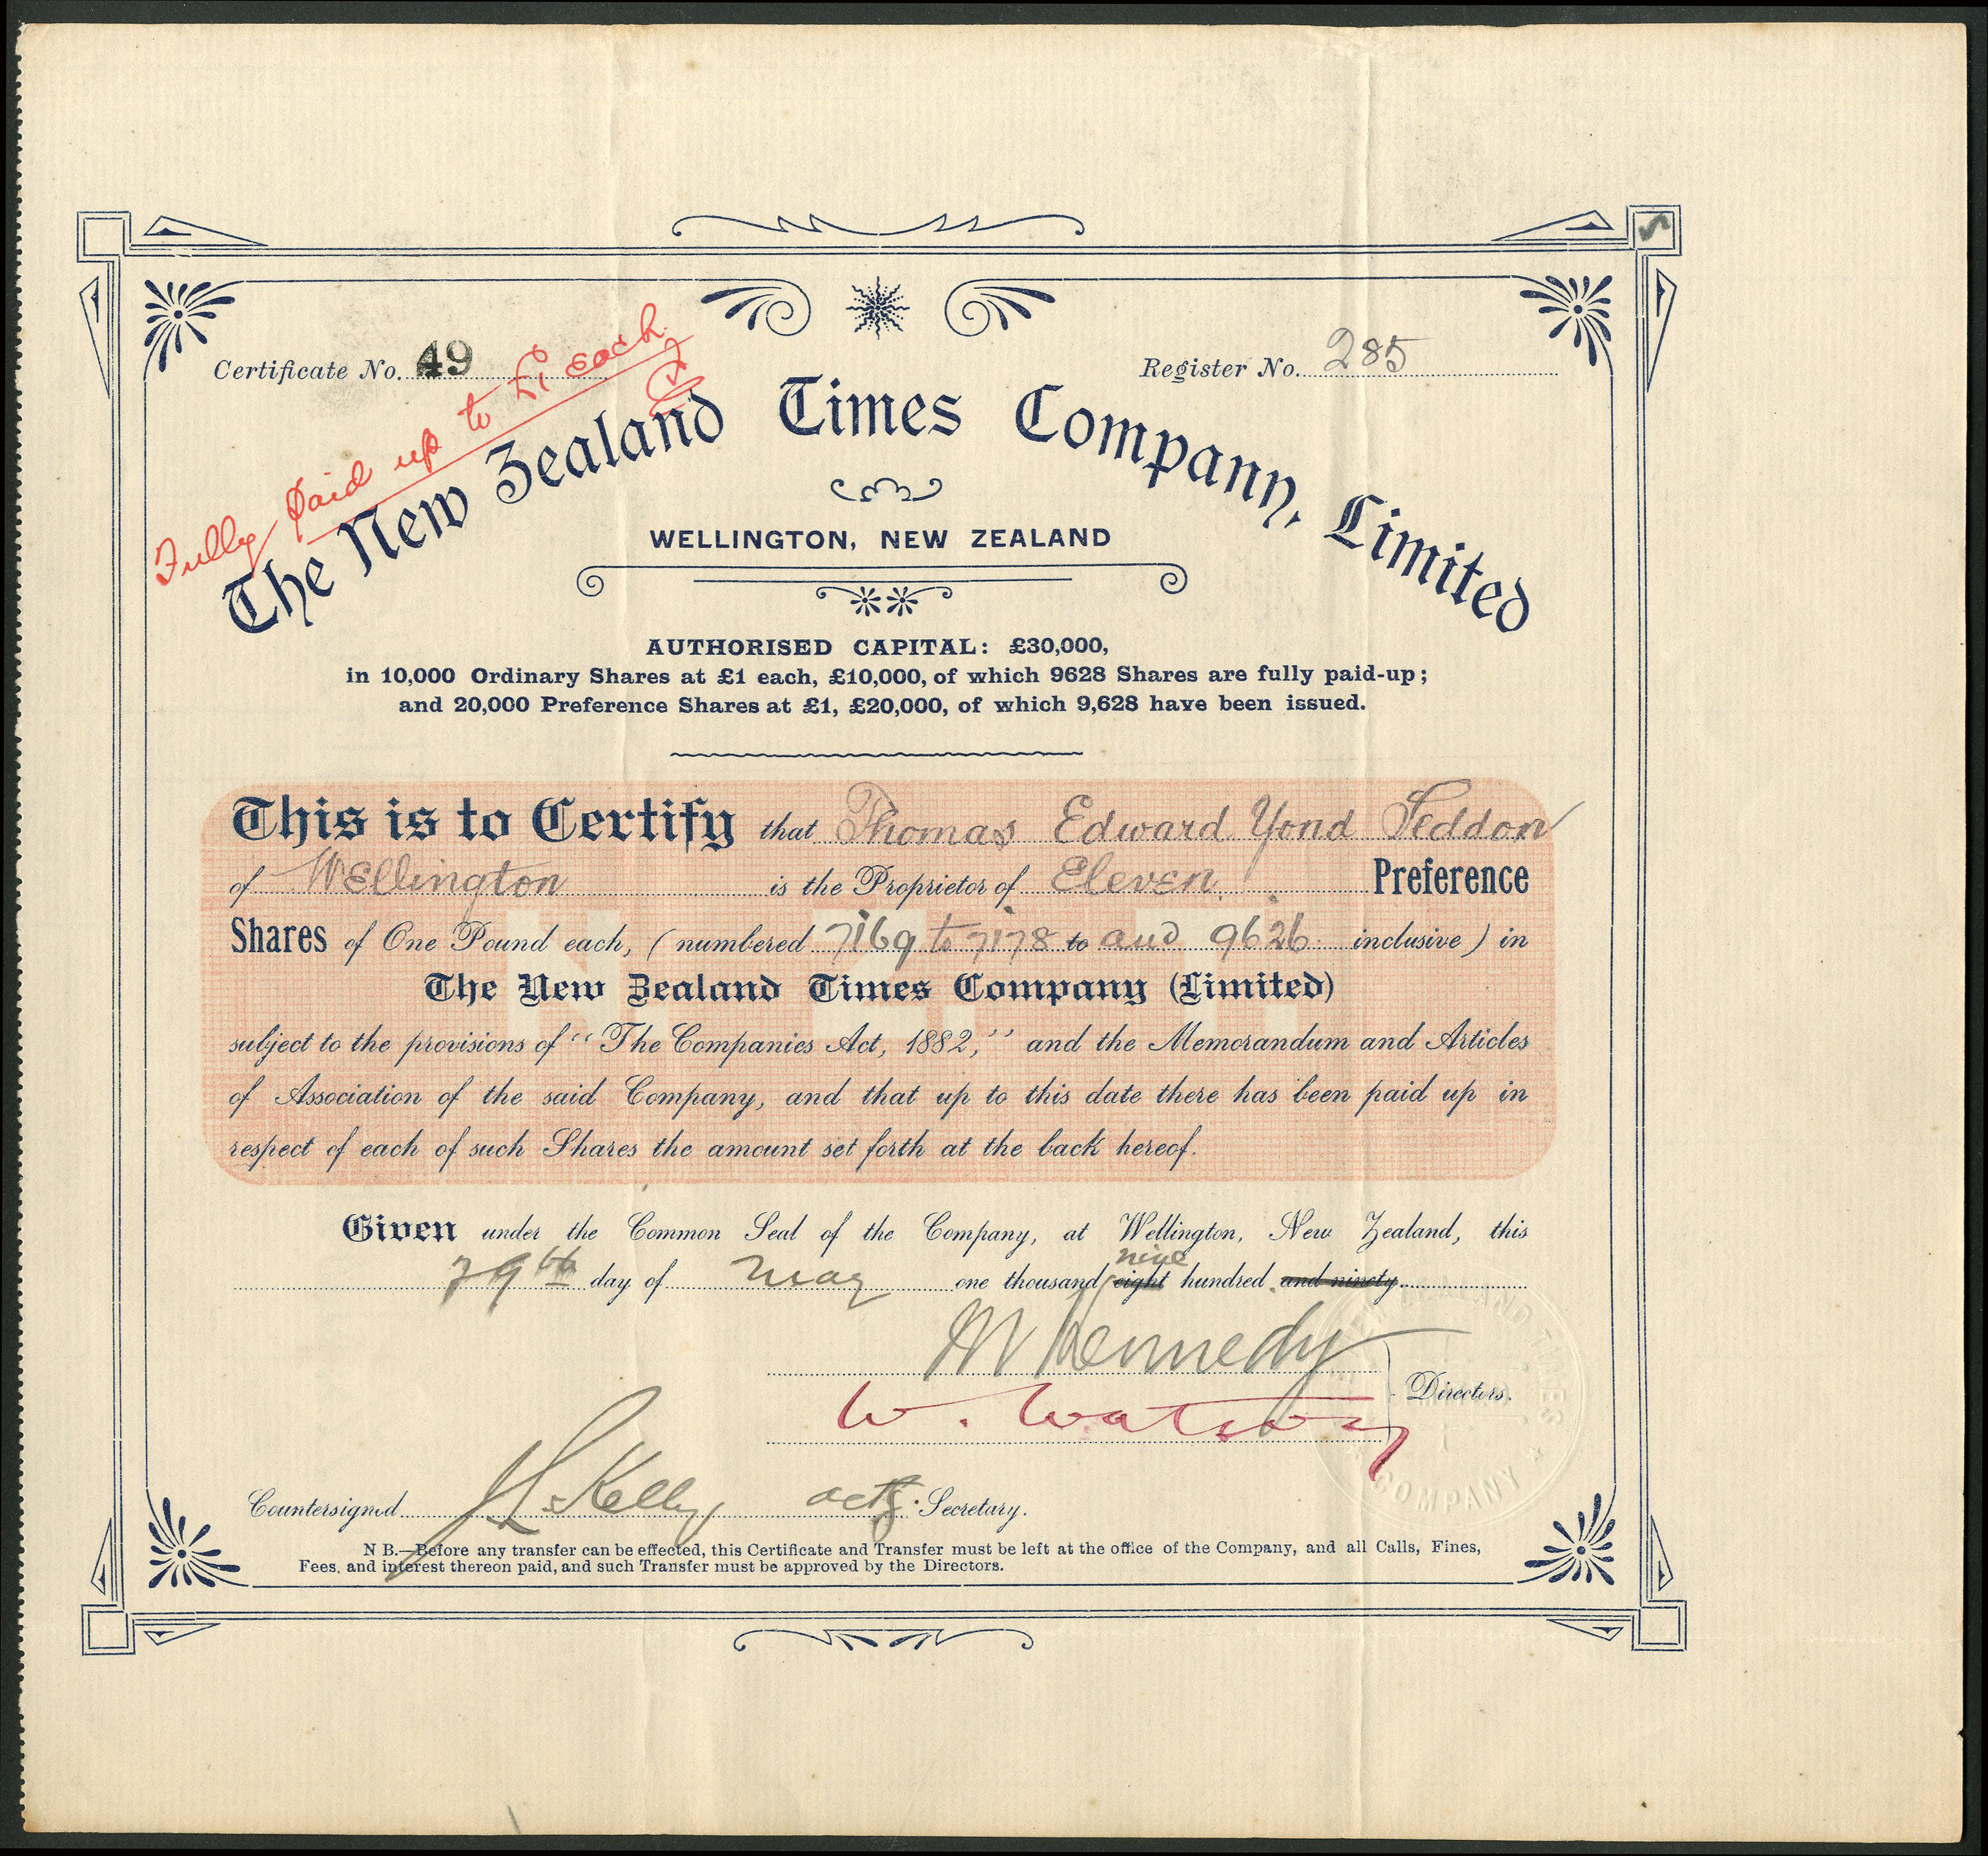 Certificate No. 49
Register No. 285
Fully paid up to £1 each
The New Zealand Times Company, Limited
WELLINGTON, NEW ZEALAND
AUTHORISED CAPITAL: £30,000,
in 10,000 Ordinary Shares at £1 each, £10,000, of which 9628 Shares are fully paid-up;
and 20,000 Preference Shares at £1, £20,000, of which 9,628 have been issued.
This is to Certify that Thomas Edward Yond Seddon
of Wellington is the Proprietor of Eleven Preference
Shares of One Pound each, (numbered 7169 to 7178 to and 9626 inclusive) in
The New Zealand Times Company (Limited)
subject to the provisions of "The Companies Act, 1882," and the Memorandum and Articles
of Association of the said Company, and that up to this date there has been paid up in
respect of each of such Shares the amount set forth at the back hereof.
Given under the Common Seal of the Company, at Wellington, New Zealand, this
29th day of May one thousand eight nine hundred and ninety
M Kennedy
W. Watson
Directors.
Countersigned J L Kelly actg. Secretary.
N B.—Before any transfer can be effected, this Certificate and Transfer must be left at the office of the Company, and all Calls, Fines,
Fees, and interest thereon paid, and such Transfer must be approved by the Directors.